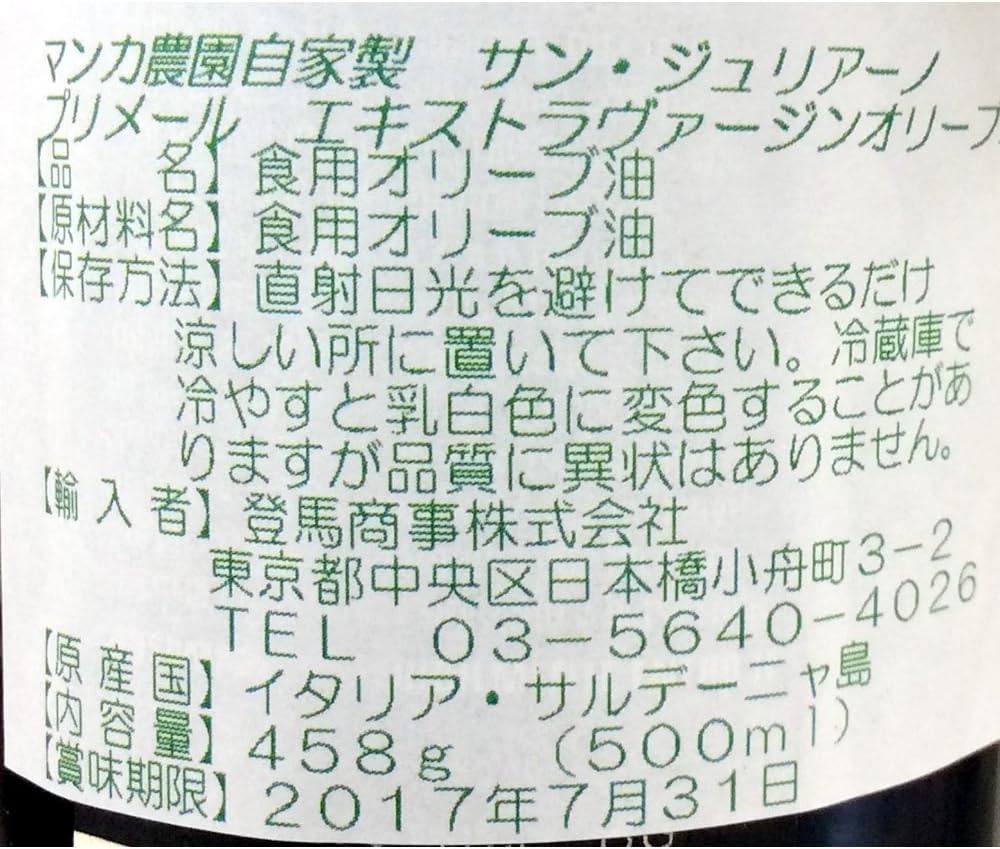 マンカ農園自家製　サン・ジュリアーノ
プリメール　エキストラヴァージンオリーブ
【品　名】食用オリーブ油
【原材料名】食用オリーブ油
【保存方法】直射日光を避けてできるだけ
涼しい所に置いて下さい。冷蔵庫で
冷やすと乳白色に変色することがあ
りますが品質に異状はありません。
【輸入者】登馬商事株式会社
東京都中央区日本橋小舟町3-2
TEL　03-5640-4026
【原産国】イタリア・サルデーニャ島
【内容量】458g　(500ml)
【賞味期限】2017年7月31日